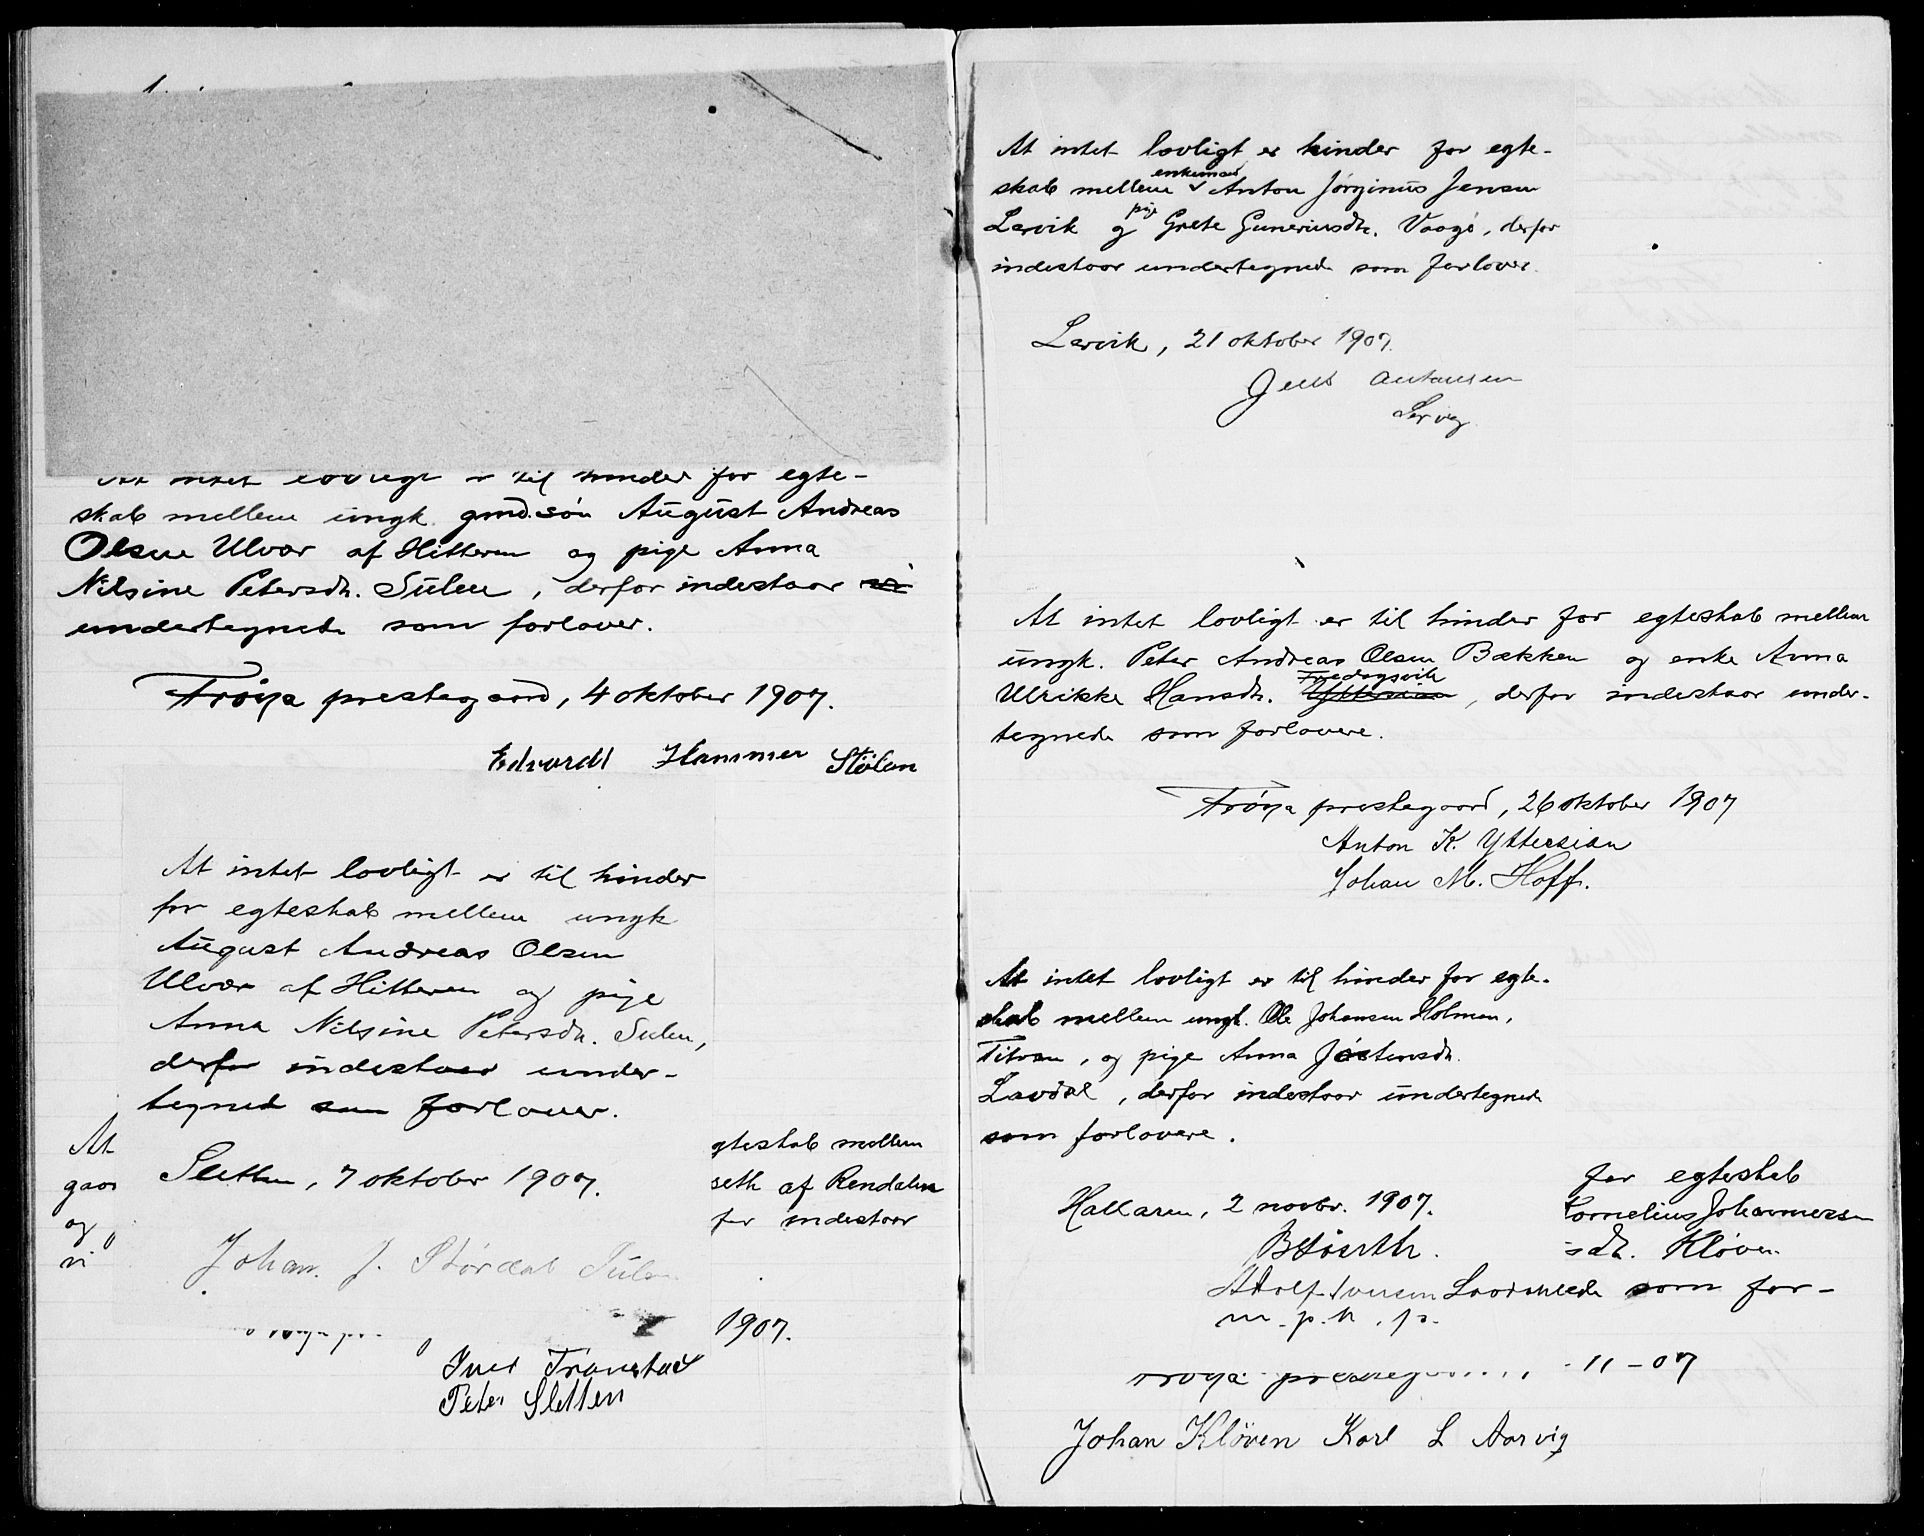 At intet lovligt er til hinder for egte-
skab mellem ungk. gmd.søn August Andreas
Olsen Ulvær af Hitteren og pige Anna
Nilsine Petersdtr. Sulen, derfor indestaar vi
undertegnede som forlover.
Frøya prestegaard, 4 oktober 1907.
Edvardt Hammer Stølan
At intet lovligt er til hinder
for egteskab mellem ungk
August Andreas Olsen
Ulvær af Hitteren og pige
Anna Nilsine Petersdtr. Sulen,
derfor indestaar under-
tegnede som forlover.
Sletten, 7 oktober 1907.
Johan. J. Størdal Sulen
At
gaar
og
vi
gteskab mellem
seth af Rendalen
for indestaar
1907.
Peter Sletten
At intet lovligt er hinder for egte-
skab mellem enkemand Anton Jørginus Jensen
Lervik og pige Grete Guneriusdtr. Vaagø, derfor
indestaar undertegnede som forlover.
Lervik, 21 oktober 1907.
Jens Antonsen
Lervig
At intet lovligt er til hinder for egteskab mellem
ungk. Peter Andreas Olsen Bekken og enke Anna
Ulrikke Hansdtr. Yttersian Fredagsvik, derfor indestaar under-
tegnede som forlovere.
Frøya prestegaard, 26 oktober 1907
Anton K. Yttersian
Johan M. Hoff.
At intet lovligt er til hinder for egte-
skab mellem ungk. Ole Johansen Holmen,
Titran, og pige Anna Jøstensdtr.
Lavdal, derfor indestaar undertegnede
som forlovere.
Hallaren, 2 novbr. 1907.
Adolf Iversen
m. p. p.
for egteskab
Kornelius Johannessen
sdtr. Kløven
som for-
røya presteg
11-07
Johan Kløven Karl L Aarvig